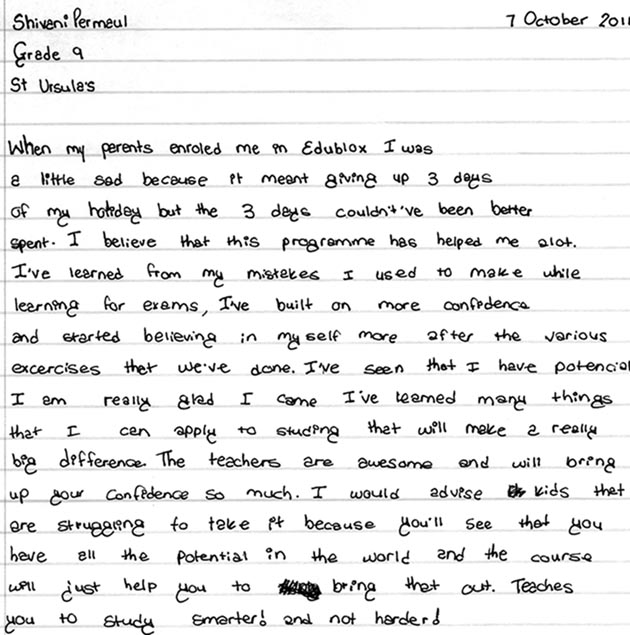 Shivani Permaul 7 October 2011
Grade 9
St Ursula's
When my parents enroled me in Edublox I was
a little sad because it meant giving up 3 days
of my holiday but the 3 days couldn't've been better
spent. I believe that this programme has helped me alot.
I've learned from my mistakes I used to make while
learning for exams, I've built on more confidence
and started believing in my self more after the various
excercises that we've done. I've seen that I have potencial
I am really glad I came I've learned many things
that I can apply to studing that will make a really
big difference. The teachers are awesome and will bring
up your confidence so much. I would advise kids that
are struggling to take it because you'll see that you
have all the potential in the world and the course
will just help you to bring that out. Teaches
you to study smarter! and not harder!